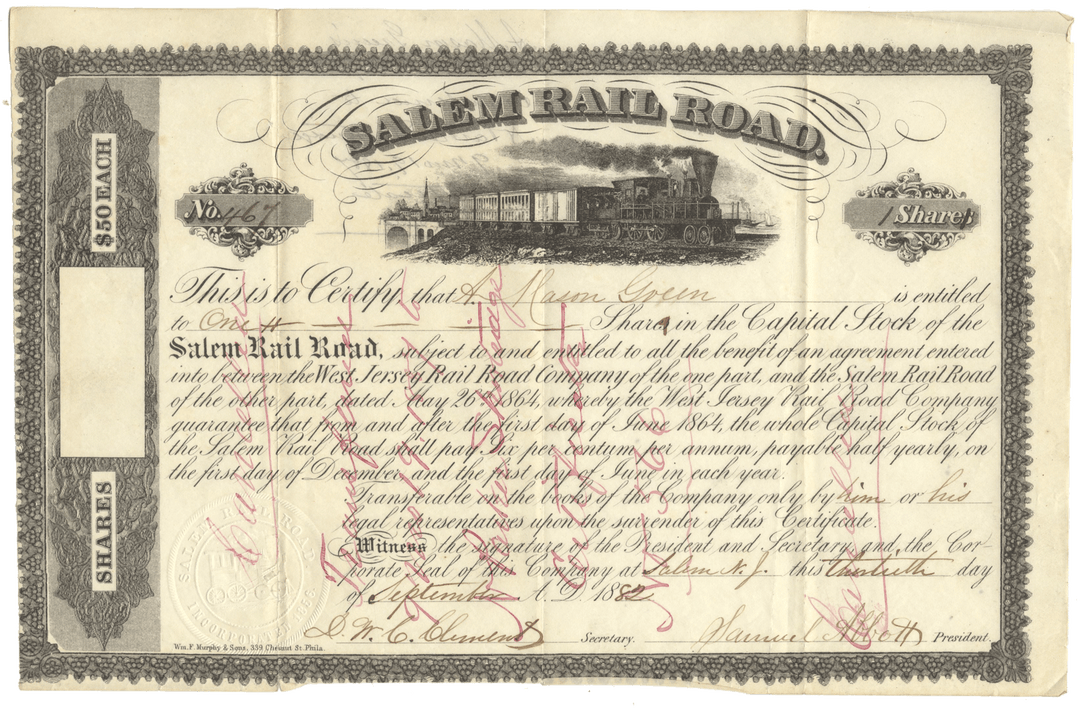 SALEM RAIL ROAD.
$50 EACH
SHARES
No. 467
1 Share
This is to Certify that A. Mason Green is entitled
to One Share, in the Capital Stock of the
Salem Rail Road, subject to and entitled to all the benefit of an agreement entered
into between the West Jersey Rail Road Company of the one part, and the Salem Rail Road
of the other part, dated May 26 1864, whereby the West Jersey Rail Road Company
guarantee that from and after the first day of June 1864, the whole Capital Stock of
the Salem Rail Road shall pay Six per centum per annum, payable half yearly, on
the first day of December, and the first day of June in each year.
Transferable on the books of the Company only by him or his
legal representatives upon the surrender of this Certificate.
Witness the signature of the President and Secretary and the Cor-
porate Seal of this Company at Salem N. J. this thirtieth day
of September A. D. 1882
D. W. C. Clement Secretary. Samuel Abbott President.
Wm. F. Murphy & Sons, 339 Chesnut St. Phila.
SALEM RAIL ROAD
INCORPORATED
Cancelled
No 536
Cancelled